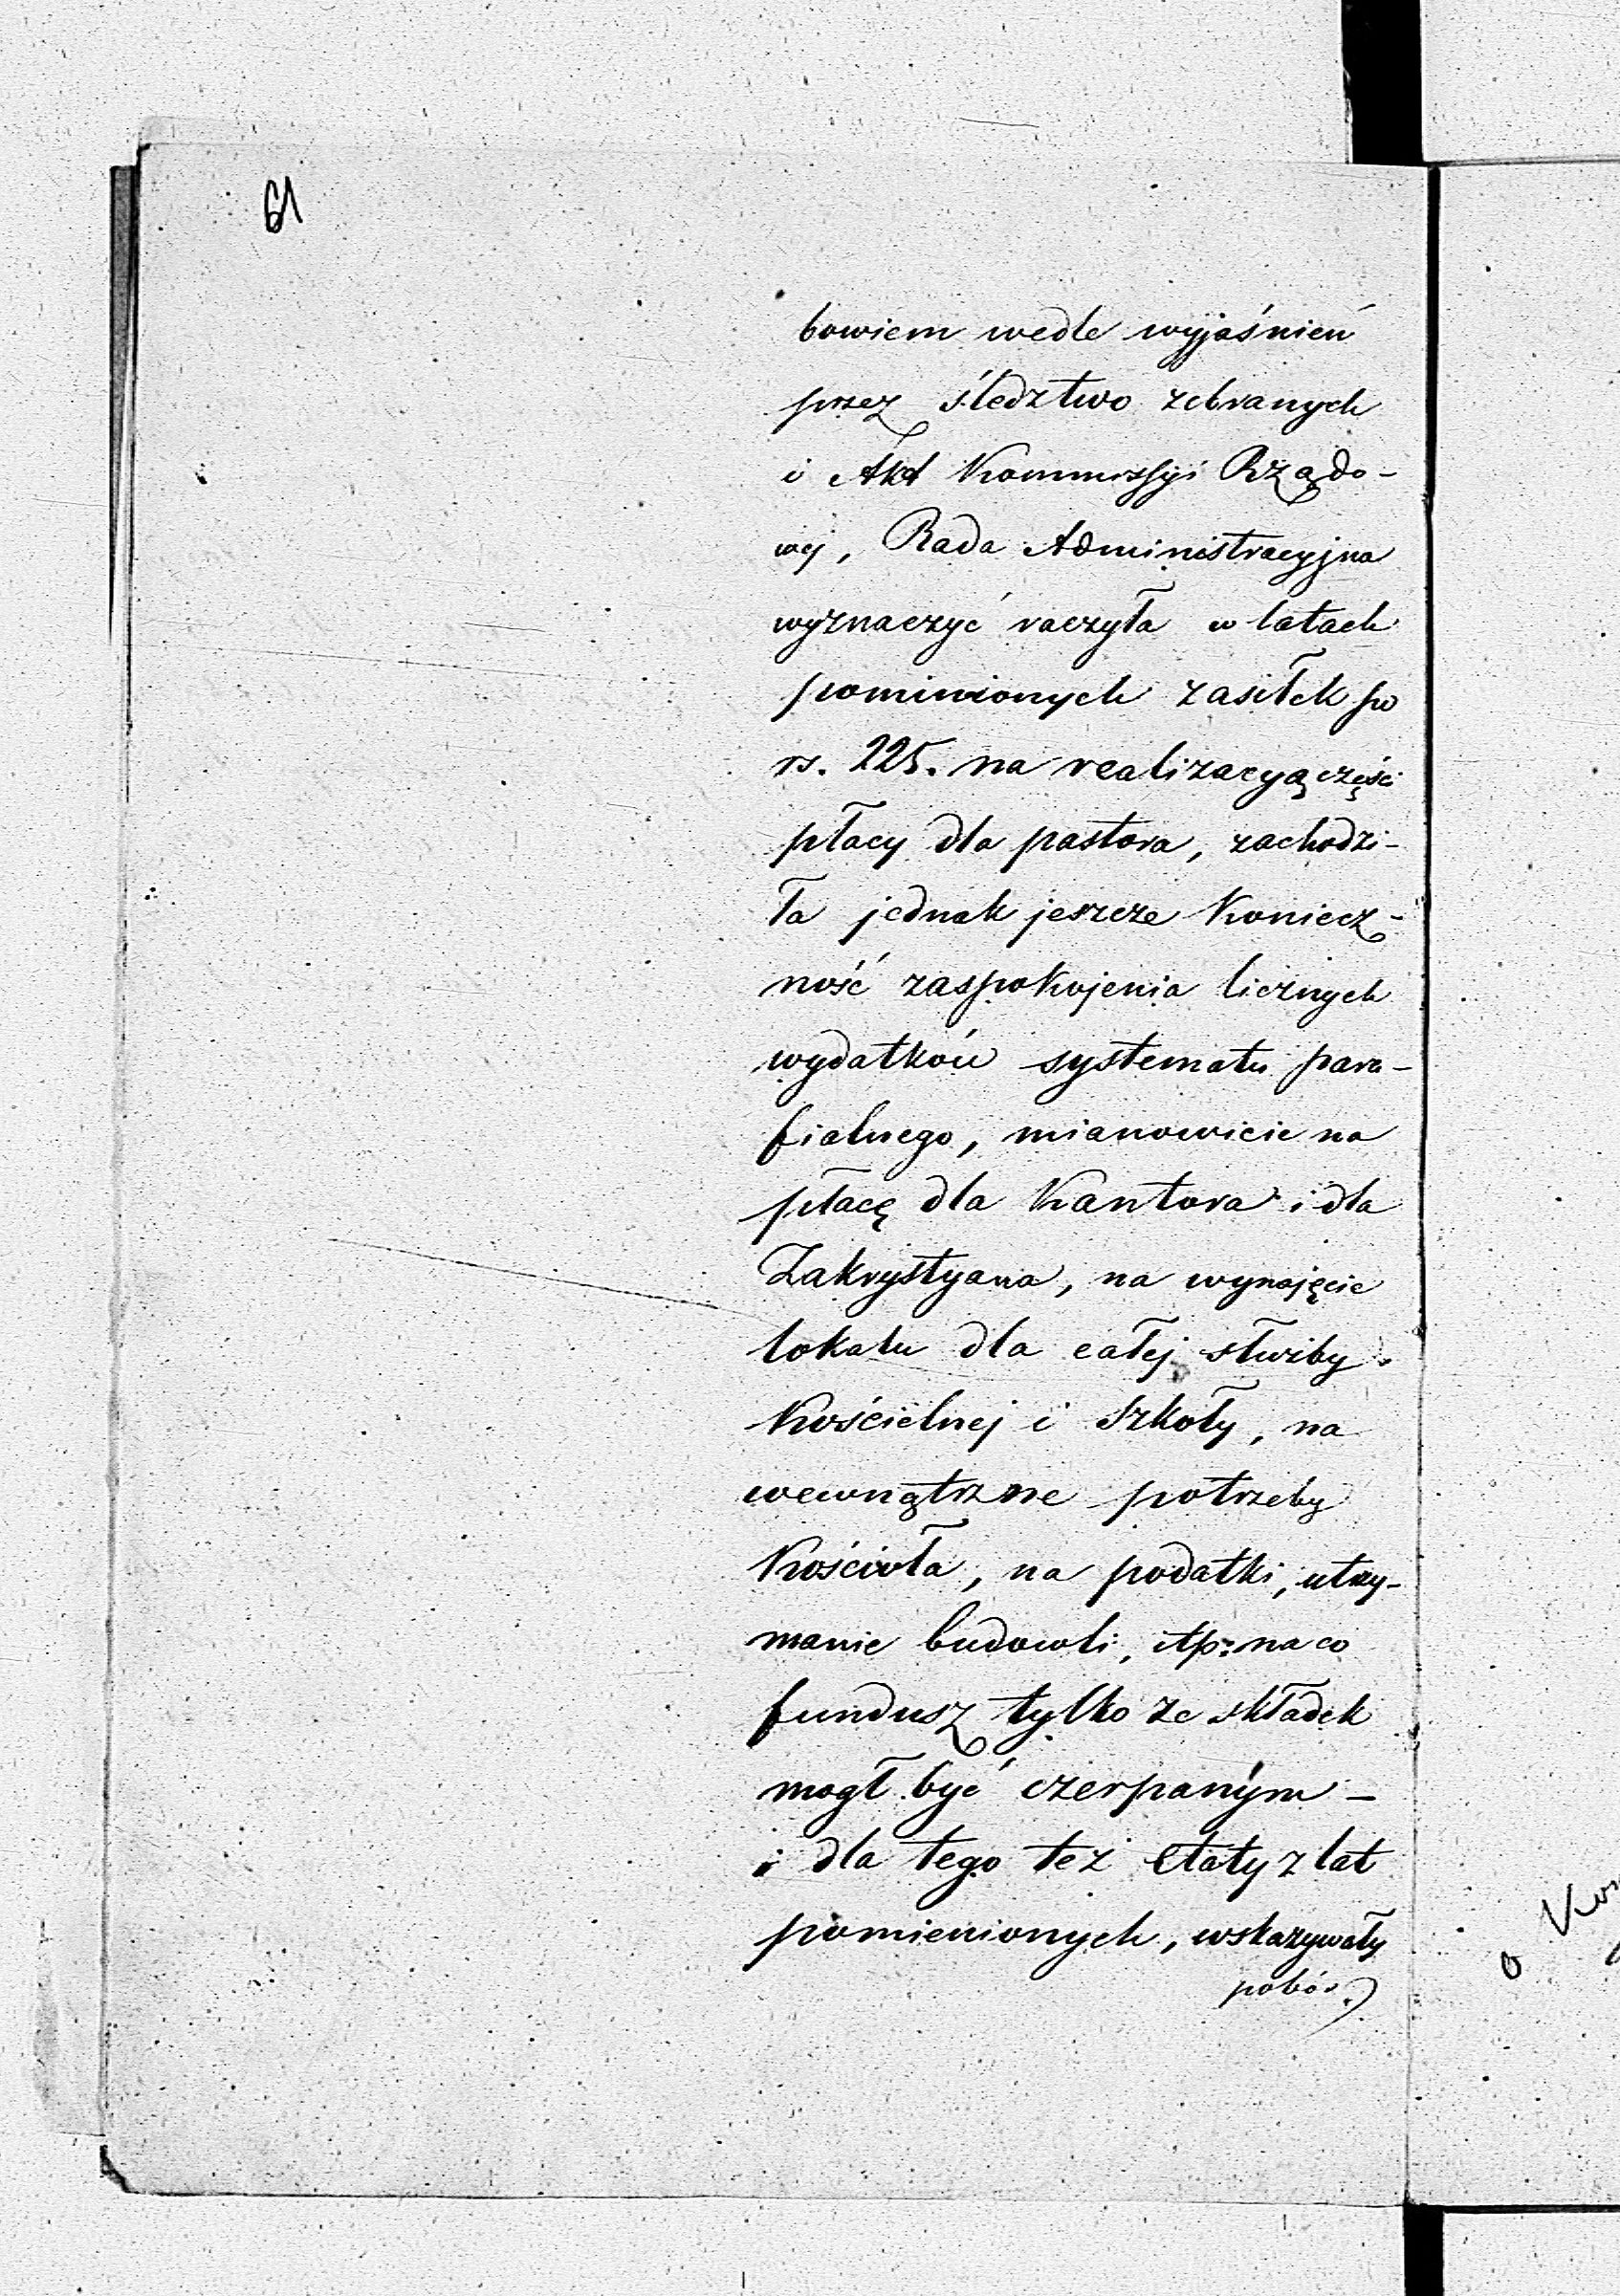 61
bowiem wedle wyjaśnień
przez śledztwo zebranych
i Akt Kommissyi Rządo-
wej, Rada Administracyjna
wyznaczyć raczyła w latach
pominionych zasiłek po
rs. 225. na realizacyą części
płacy dla pastora, zachodzi-
ła jednak jeszcze koniecz-
ność zaspokojenia licznych
wydatków systematu para-
fialnego, mianowicie na
płacę dla Kantora i dla
Zakrystyana, na wynajęcie
lokalu dla całej służby
Kościelnej i Szkoły, na
wewnątrzne potrzeby
Kościoła, na podatki, utrzy-
manie budowli, itp: na co
fundusz tylko ze składek
mogł być czerpanym –
i dla tego też etaty z lat
pomienionych, wskazywały
pobór